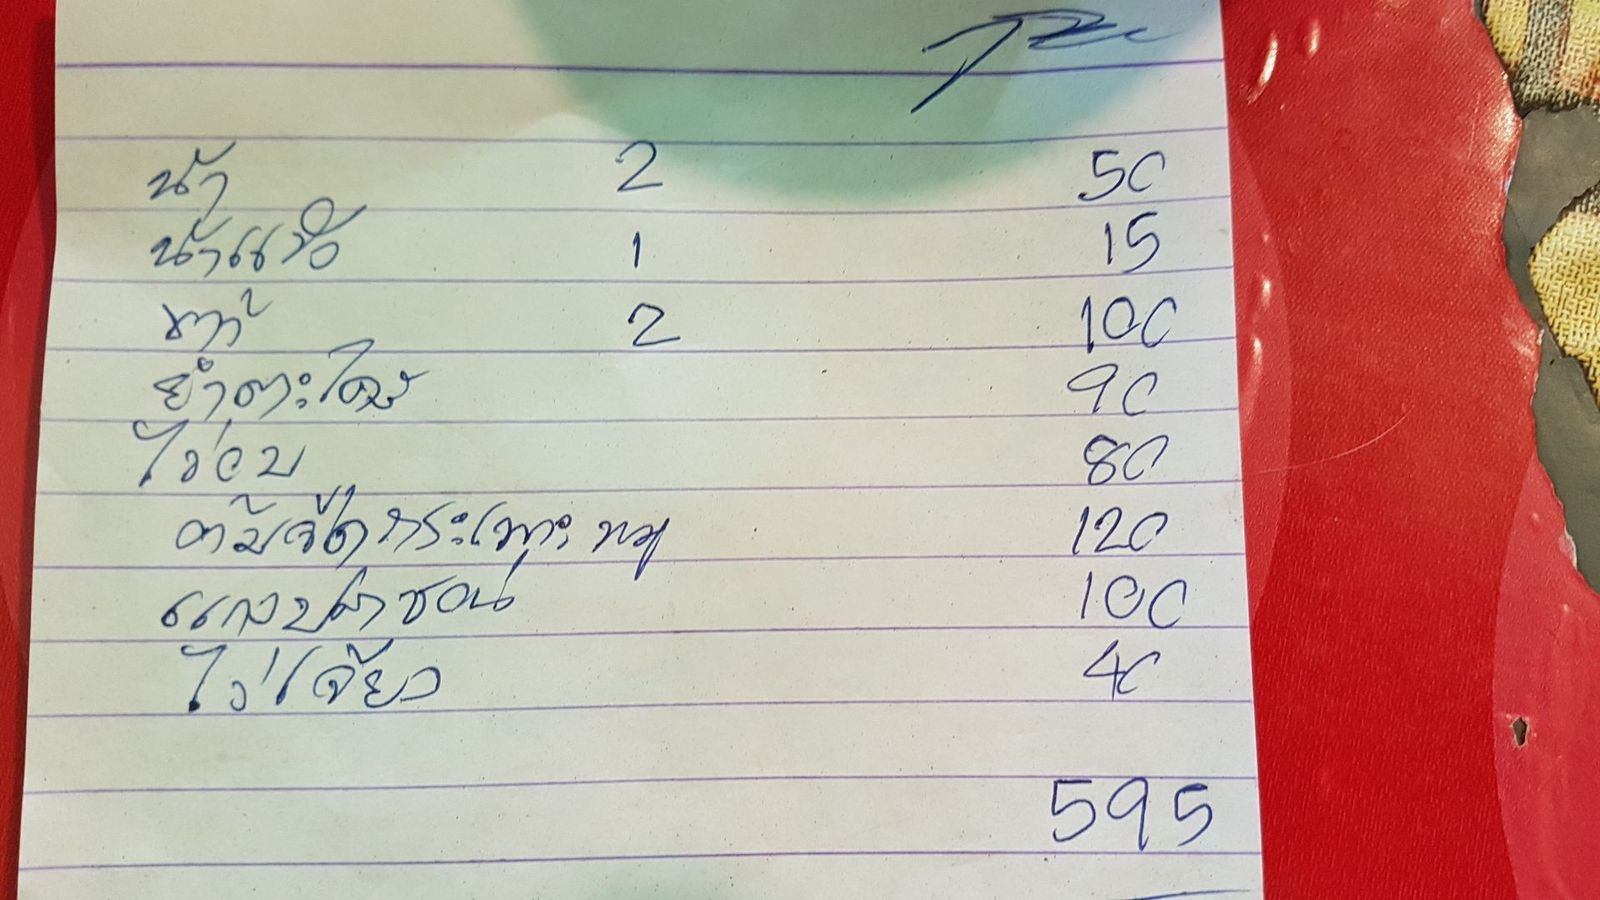 น้ำ 2 50
น้ำแข็ง 1 15
2 100
ยำตะไคร้ 90
ไก่อบ 80
ต้มจืดกระเพาะหมู 120
แกงปลาช่อน 100
ไข่เจียว 40
595